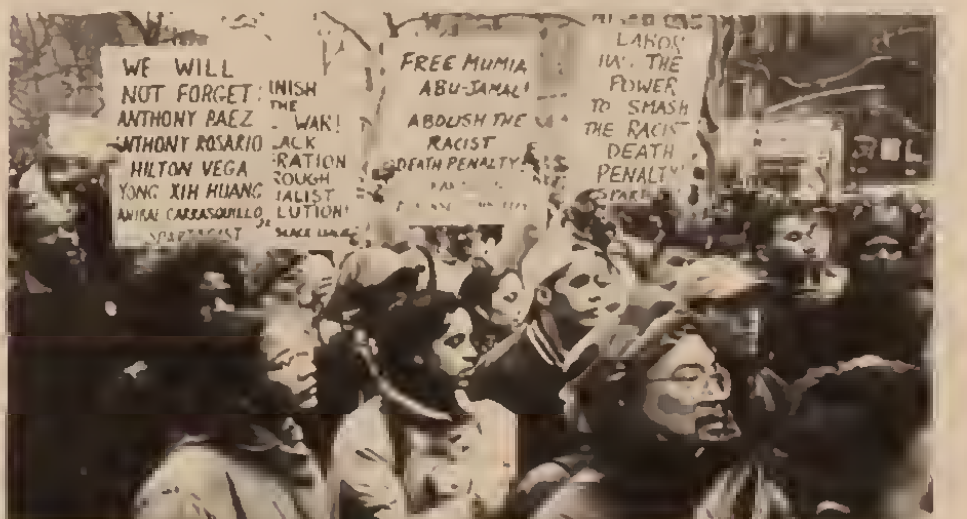 WE WILL
NOT FORGET:
ANTHONY BAEZ
ANTHONY ROSARIO
HILTON VEGA
YONG XIH HUANG
ANIBAL CARRASQUILLO
SPARTACIST
INISH
THE
WAR!
ACK
RATION
ROUGH
IALIST
LUTION!
FREE MUMIA
ABU-JAMAL!
ABOLISH THE
RACIST
DEATH PENALTY!
LABOR
THE
POWER
TO SMASH
THE RACIST
DEATH
PENALTY!
SPART